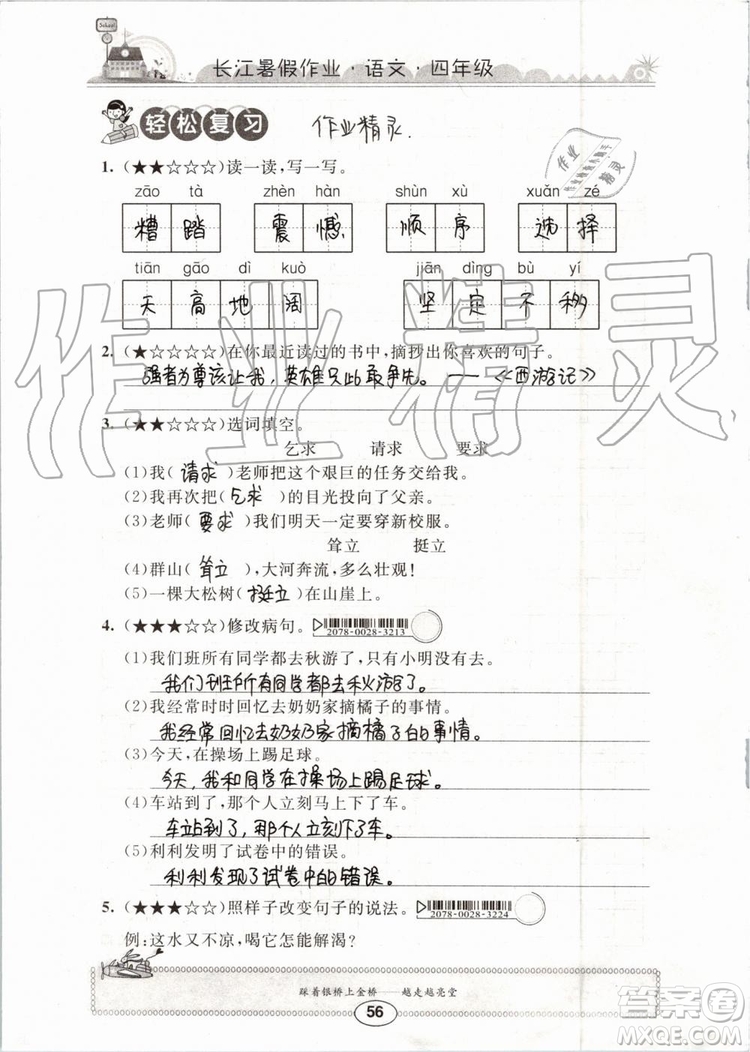 School
长江暑假作业·语文·四年级
轻松复习 作业精灵.
作业
精灵
1. (★★☆☆☆)读一读,写一写。
zāo tà zhèn hàn shùn xù xuǎn zé
糟踏 震憾 顺序 选择
tiān gāo dì kuò jiān dìng bù yí
天高地阔 坚定不移
2. (★☆☆☆☆)在你最近读过的书中,摘抄出你喜欢的句子。
强者为尊该让我,英雄只此敢争先。——《西游记》
3. (★★☆☆☆)选词填空。
乞求 请求 要求
(1)我( 请求 )老师把这个艰巨的任务交给我。
(2)我再次把( 乞求 )的目光投向了父亲。
(3)老师( 要求 )我们明天一定要穿新校服。
耸立 挺立
(4)群山( 耸立 ),大河奔流,多么壮观!
(5)一棵大松树( 挺立 )在山崖上。
4. (★★★☆☆)修改病句。
2078-0028-3213
(1)我们班所有同学都去秋游了,只有小明没有去。
我们班所有同学都去秋游了。
(2)我经常时时回忆去奶奶家摘橘子的事情。
我经常回忆去奶奶家摘橘子的事情。
(3)今天,在操场上踢足球。
今天,我和同学在操场上踢足球。
(4)车站到了,那个人立刻马上下了车。
车站到了,那个人立刻下了车。
(5)利利发明了试卷中的错误。
利利发现了试卷中的错误。
5. (★★★☆☆)照样子改变句子的说法。
2078-0028-3224
例:这水又不凉,喝它怎能解渴?
踩着银桥上金桥——越走越亮堂
56
作业精灵
答案圈
MXQE.COM